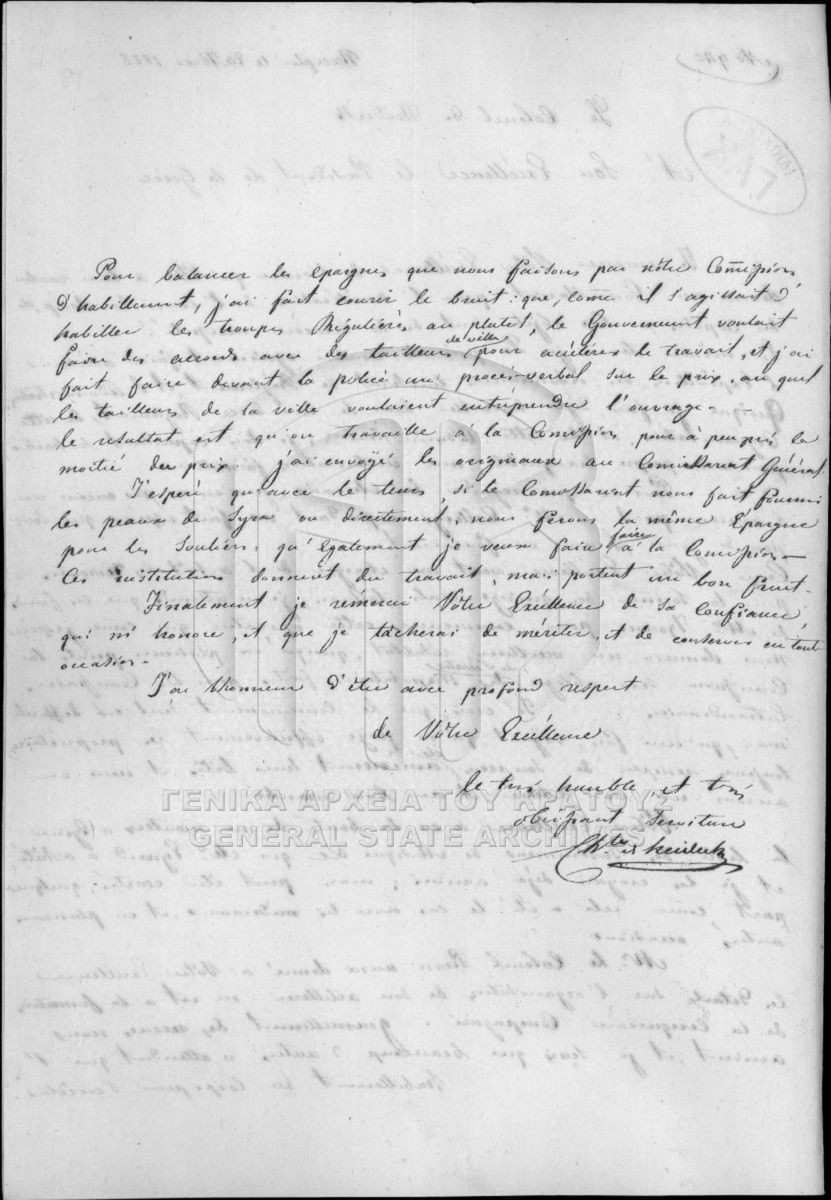 Pour balancer les épargnes que nous faisons par nôtre Comission
d'habillement, j'ai fait courir le bruit: que, come il s'agissait d'
habiller les troupes Régulières au plutot, le Gouvernement voulait
faire des accords avec des tailleurs de ville pour acélérer le travail, et j'ai
fait faire devant la police un procés verbal sur le prix, au quel
les tailleurs de la ville voulaient entreprendre l'ouvrage.
le resultat est qu'on travaille à la Comission pour à peu prés la
moitié du prix. j'ai envoyé les originaux au Comissariat Général.
J'esperé qu'avec le tems, si le Comissariat nous fait fournir
les peaux de Syra ou directement, nous ferons la même Épargne
pour les Souliers, qu'Également je veux faire faire à la Comission
Ces institutions donnent du travail, mais portent un bon fruit.
Finalement je remercie Vôtre Excéllence de Sa Confiance,
qui m'honore, et que je tâcherai de mériter, et de conserver en tout
occasion.
J'ai l'honneur d'être avec profond respect
de Vôtre Excéllence
le trés humble, et trés
obéissant Serviteur
Heideck
ΓΕΝΙΚΑ ΑΡΧΕΙΑ ΤΟΥ ΚΡΑΤΟΥΣ
GENERAL STATE ARCHIVES